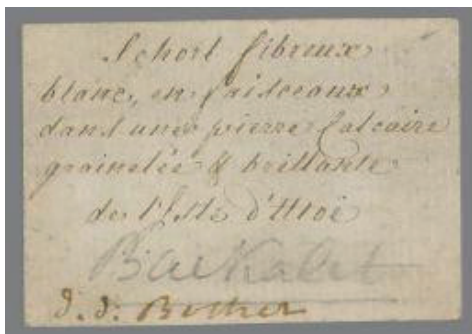 Schorl fibreux
blanc, en faisceaux
dans une pierre calcaire
grainelée & brillante
de l'Isle d'
d. d.